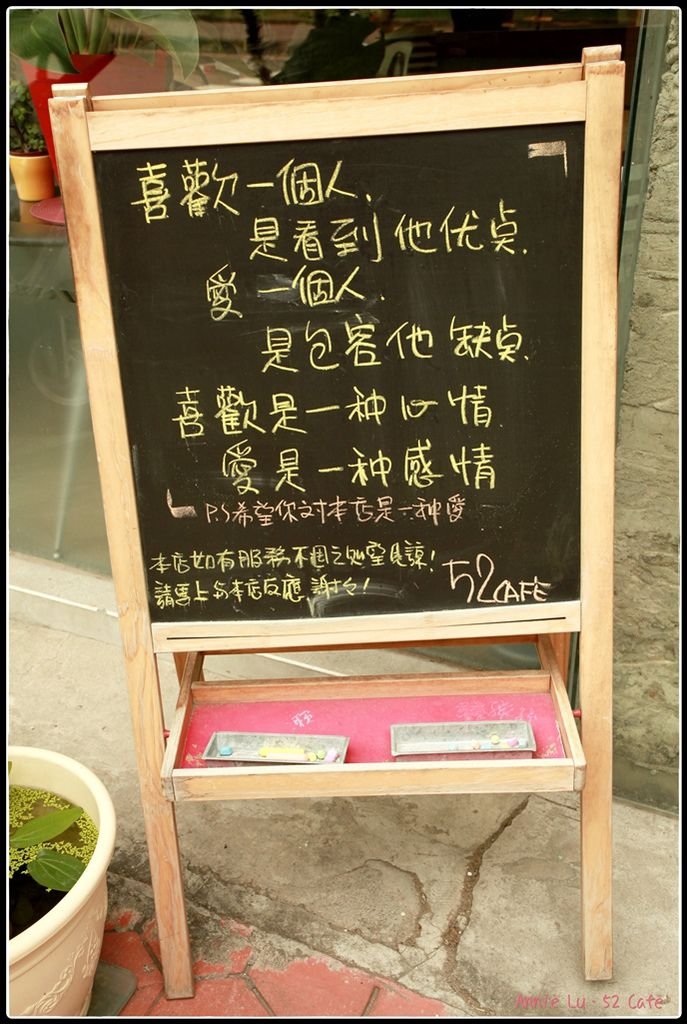 喜歡一個人.
是看到他优点.
愛一個人.
是包容他缺点.
喜歡是一种心情
愛是一种感情
P.S希望你对本店是一种愛
本店如有服務不週之処望見諒!
請馬上与本店反應,謝々!
52 CAFE
Annie Lu - 52 Cafe